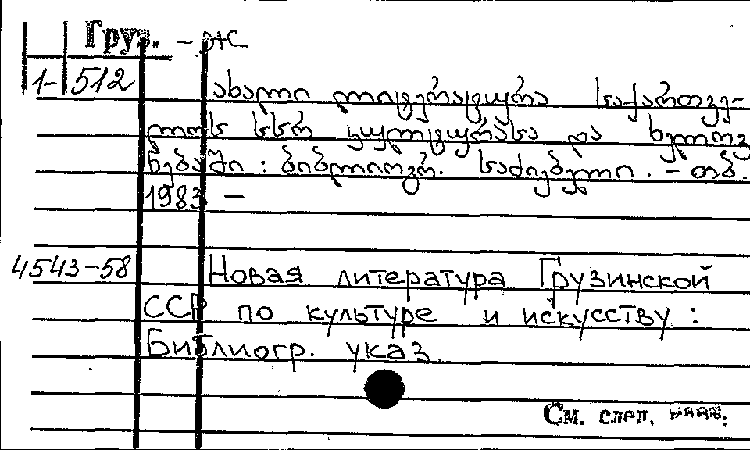 Груз. - Ж
1- 512
ახალი ლიტერატურა საქართვე-
ლოს სსრ კულტურასა და ხელოვ
ნებაში : ბიბლიოგრ. საძიებელი. - თბ.
1983 -
4543-58 Новая литература Грузинской
ССР по культуре и искусству :
Библиогр. указ.
См. след.